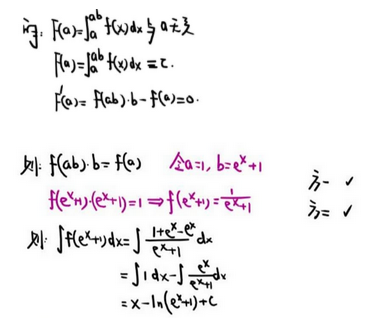 词: F(a)=∫ₐᵃᵇ f(x)dx 与 a 无关
F(a)=∫ₐᵃᵇ f(x)dx ≡ c.
F'(a)= f(ab)·b - f(a)=0.
则: f(ab)·b = f(a) 令a=1, b=eˣ+1
f(eˣ+1)·(eˣ+1)=1 ⟹ f(eˣ+1)=1/(eˣ+1)
方一 ✓
方二 ✓
则: ∫f(eˣ+1)dx=∫(1+eˣ-eˣ)/(eˣ+1) dx
=∫1dx-∫eˣ/(eˣ+1) dx
=x-ln(eˣ+1)+C